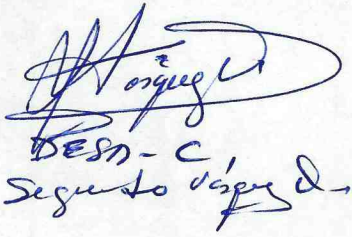 Vásquez D
DESA-C
Segundo Vásquez D.